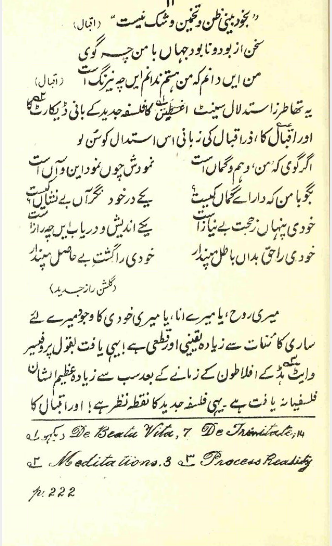 ۱۱
"بخود بینی ظن و تخمین و شک نیست" (اقبال)
سخن از بود و نابود جہاں با من چہ گوی
من ایں دانم کہ من ہستم ندانم ایں چہ نیرنگ است (اقبال)
یہ تھا طرز استدلال سینٹ اغسطین۱ کا فلسفہ جدید کے بانی ڈیکارٹ۲ کا
اور اقبال کا، ذرا قبال کی زبانی اس استدلال کو سُن لو
اگر گوی کہ من، وہم و گماں است نمودش چوں نمود این و آں است
بگو با من کہ دارائے گماں کیست؟ یکے در خود نگر آں بے نشاں کیست؟
خودی پنہاں ز حجت بے نیاز است یکے اندیش و دریاب ایں چہ راز است
خودی را حق بداں باطل مپندار خودی را کشت بے حاصل مپندار
(گلشن راز جدید)
میری روح، یا میرے انا، یا میری خودی کا وجود میرے لئے
ساری کائنات سے زیادہ یقینی اور قطعی ہے! یہی یافت بقول پروفیسر
وایٹ ہڈ۳ کے افلاطون کے زمانے کے بعد سب سے زیادہ عظیم الشان
فلسفیانہ یافت ہے۔ یہی فلسفہ جدید کا نقطہ نظر ہے! اور اقبال کا
۱ دیکھو De Beata Vita, 7 De Trinitate, 14
۲ Meditations. 3 ۳ Process Reality
p. 222